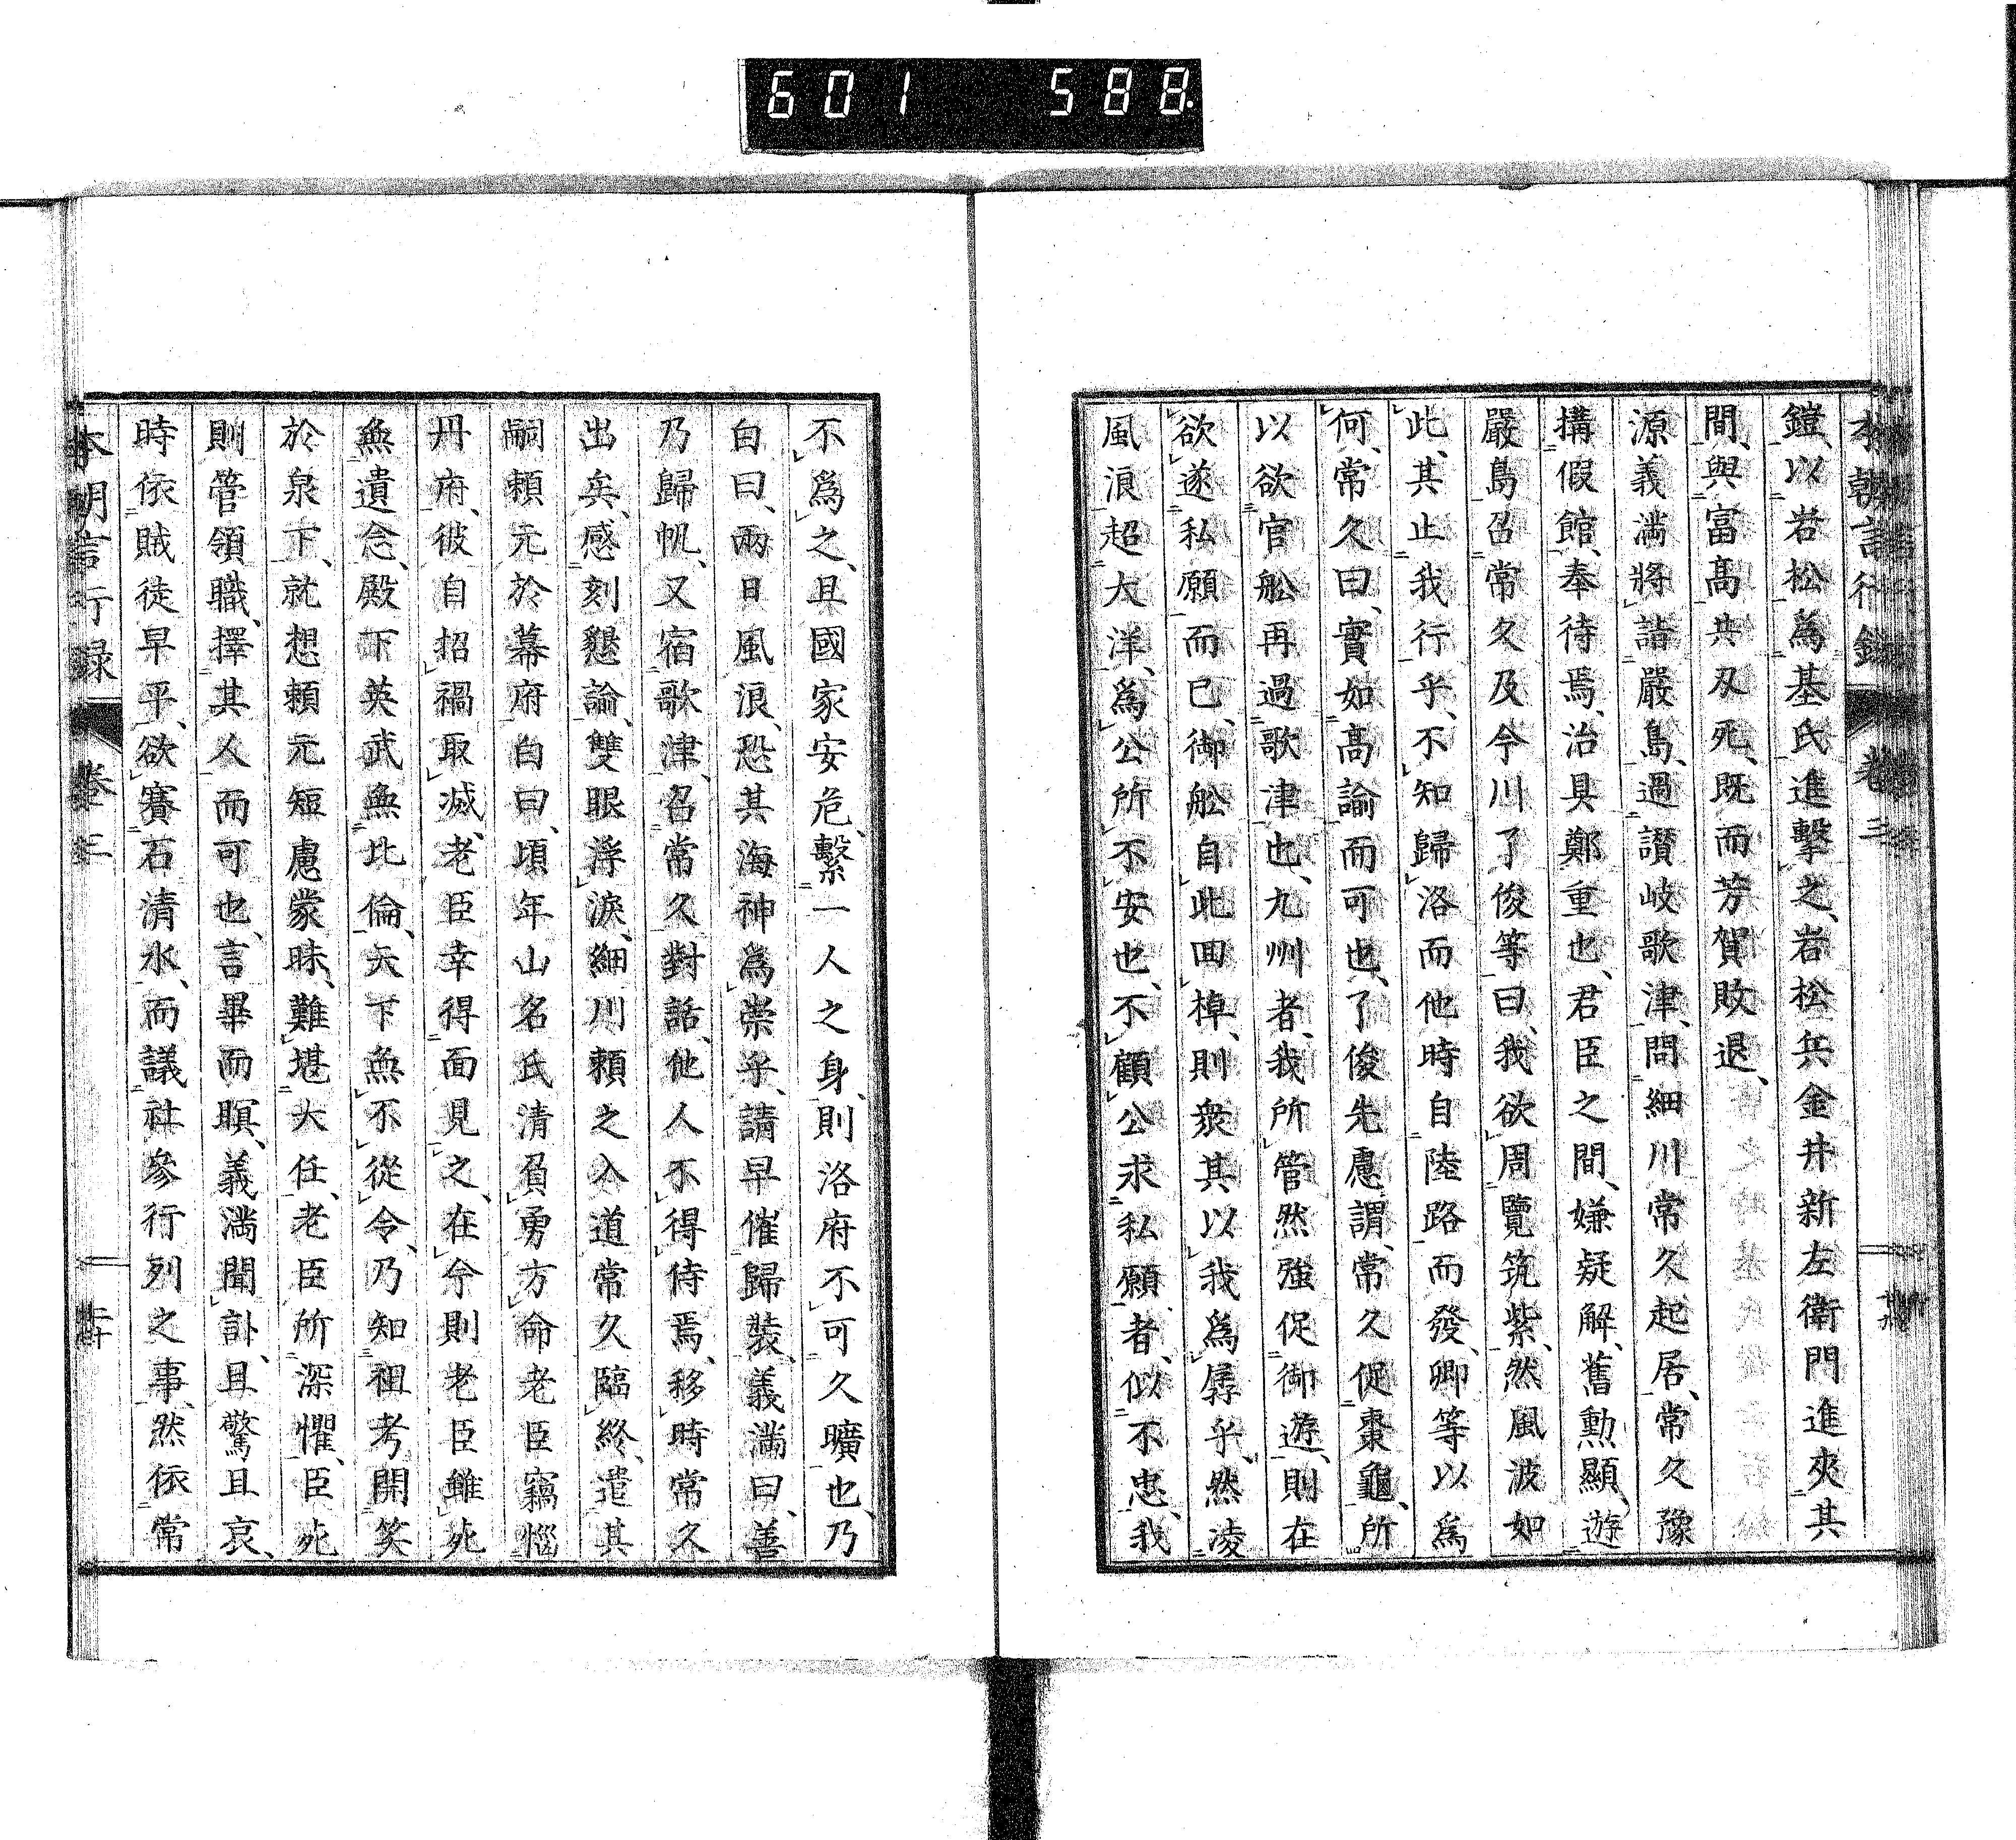 601 588
本朝言行錄 卷三 十九
鎧、以岩松爲基氏進擊之、岩松兵金井新左衛門進夾其
間、與富高共刄死、既而芳賀敗退、
源義滿將詣嚴島、過讃岐歌津、問細川常久起居、常久豫
搆假館、奉待焉、治具鄭重也、君臣之間、嫌疑解、舊勲顯、遊
嚴島召常久及今川了俊等曰、我欲周覽筑紫、然風波如
此、其止我行乎、不知歸洛而他時自陸路而發、卿等以爲
何、常久曰、實如高諭而可也、了俊先慮謂、常久促棗龜、所
以欲官舩再過歌津也、九州者、我所管然強促御遊、則在
欲遂私願而已、御舩自此回棹、則衆其以我爲孱乎、然凌
風浪超大洋、爲公所不安也、不顧公求私願者、似不忠、我
不爲之、且國家安危、繫一人之身、則洛府不可久曠也、乃
白曰、兩日風浪、恐其海神爲崇乎、請早催歸裝、義滿曰、善
乃歸帆、又宿歌津、召常久對話、他人不得侍焉、移時常久
出矣、感刻懇論、雙眼浮淚、細川賴之入道常久臨終、遣其
嗣賴元於幕府白曰、頃年山名氏清負勇方命老臣竊惱
丹府、彼自招禍取滅、老臣幸得面見之、在今則老臣雖死
無遺念、殿下英武無比倫、天下無不從令、乃知祖考開笑
於泉下、就想賴元短慮蒙昧、難堪大任、老臣所深懼、臣死
則管領職、擇其人而可也、言畢而瞑、義滿聞訃、且驚且哀、
時依賊徒早平、欲賽石清水、而議社參行列之事、然依常
本朝言行録 卷三 二十